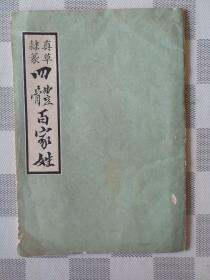 真草
隸篆
四體百家姓